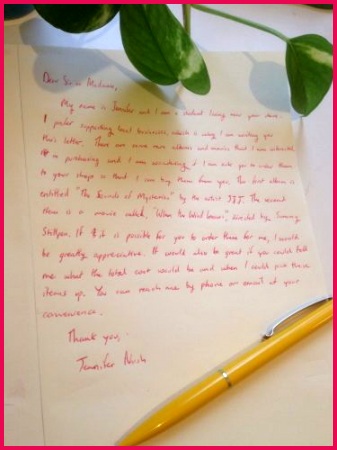 Dear Sir or Madame,
My name is Jennifer and I am a student living near your store.
I prefer supporting local businesses, which is why I am writing you
this letter. There are some more albums and movies that I am interested
in purchasing and I am wondering if I can ask you to order them
to your shop so that I can buy them from you. The first album is
entitled "The Sounds of Mysteries" by the artist JJJ. The second
item is a movie called, "When the Wind blows", directed by
If it is possible for you to order them for me, I would
be greatly appreciative. It would also be great if you could tell
me what the total cost would be and when I could pick these
items up. You can reach me by phone or email at your
convenience.
Thank you,
Jennifer